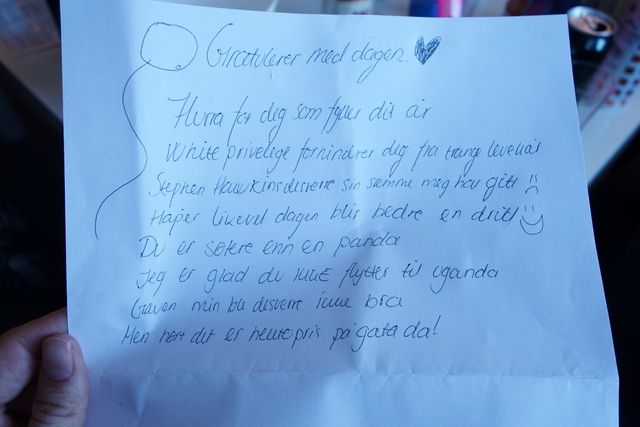 Gratulerer med dagen. ♥
Hurra for deg som fyller ditt år
White privelege forhindrer deg fra trange levekår
Stephen Hawkins desverre sin stemme meg har gitt :(
Håper likevel dagen blir bedre en dritt! :)
Du er søtere enn en panda
Jeg er glad du ikke flytter til Uganda
Gaven min ble desverre ikke bra
Men hørt det er heute pris på gata da!